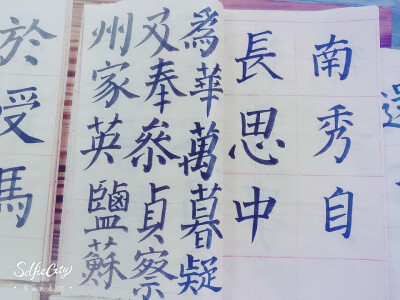 南秀自
長思中
爲華萬暮疑
及奉叅貞察
州家英鹽蘇
於受馬
SelfieCity